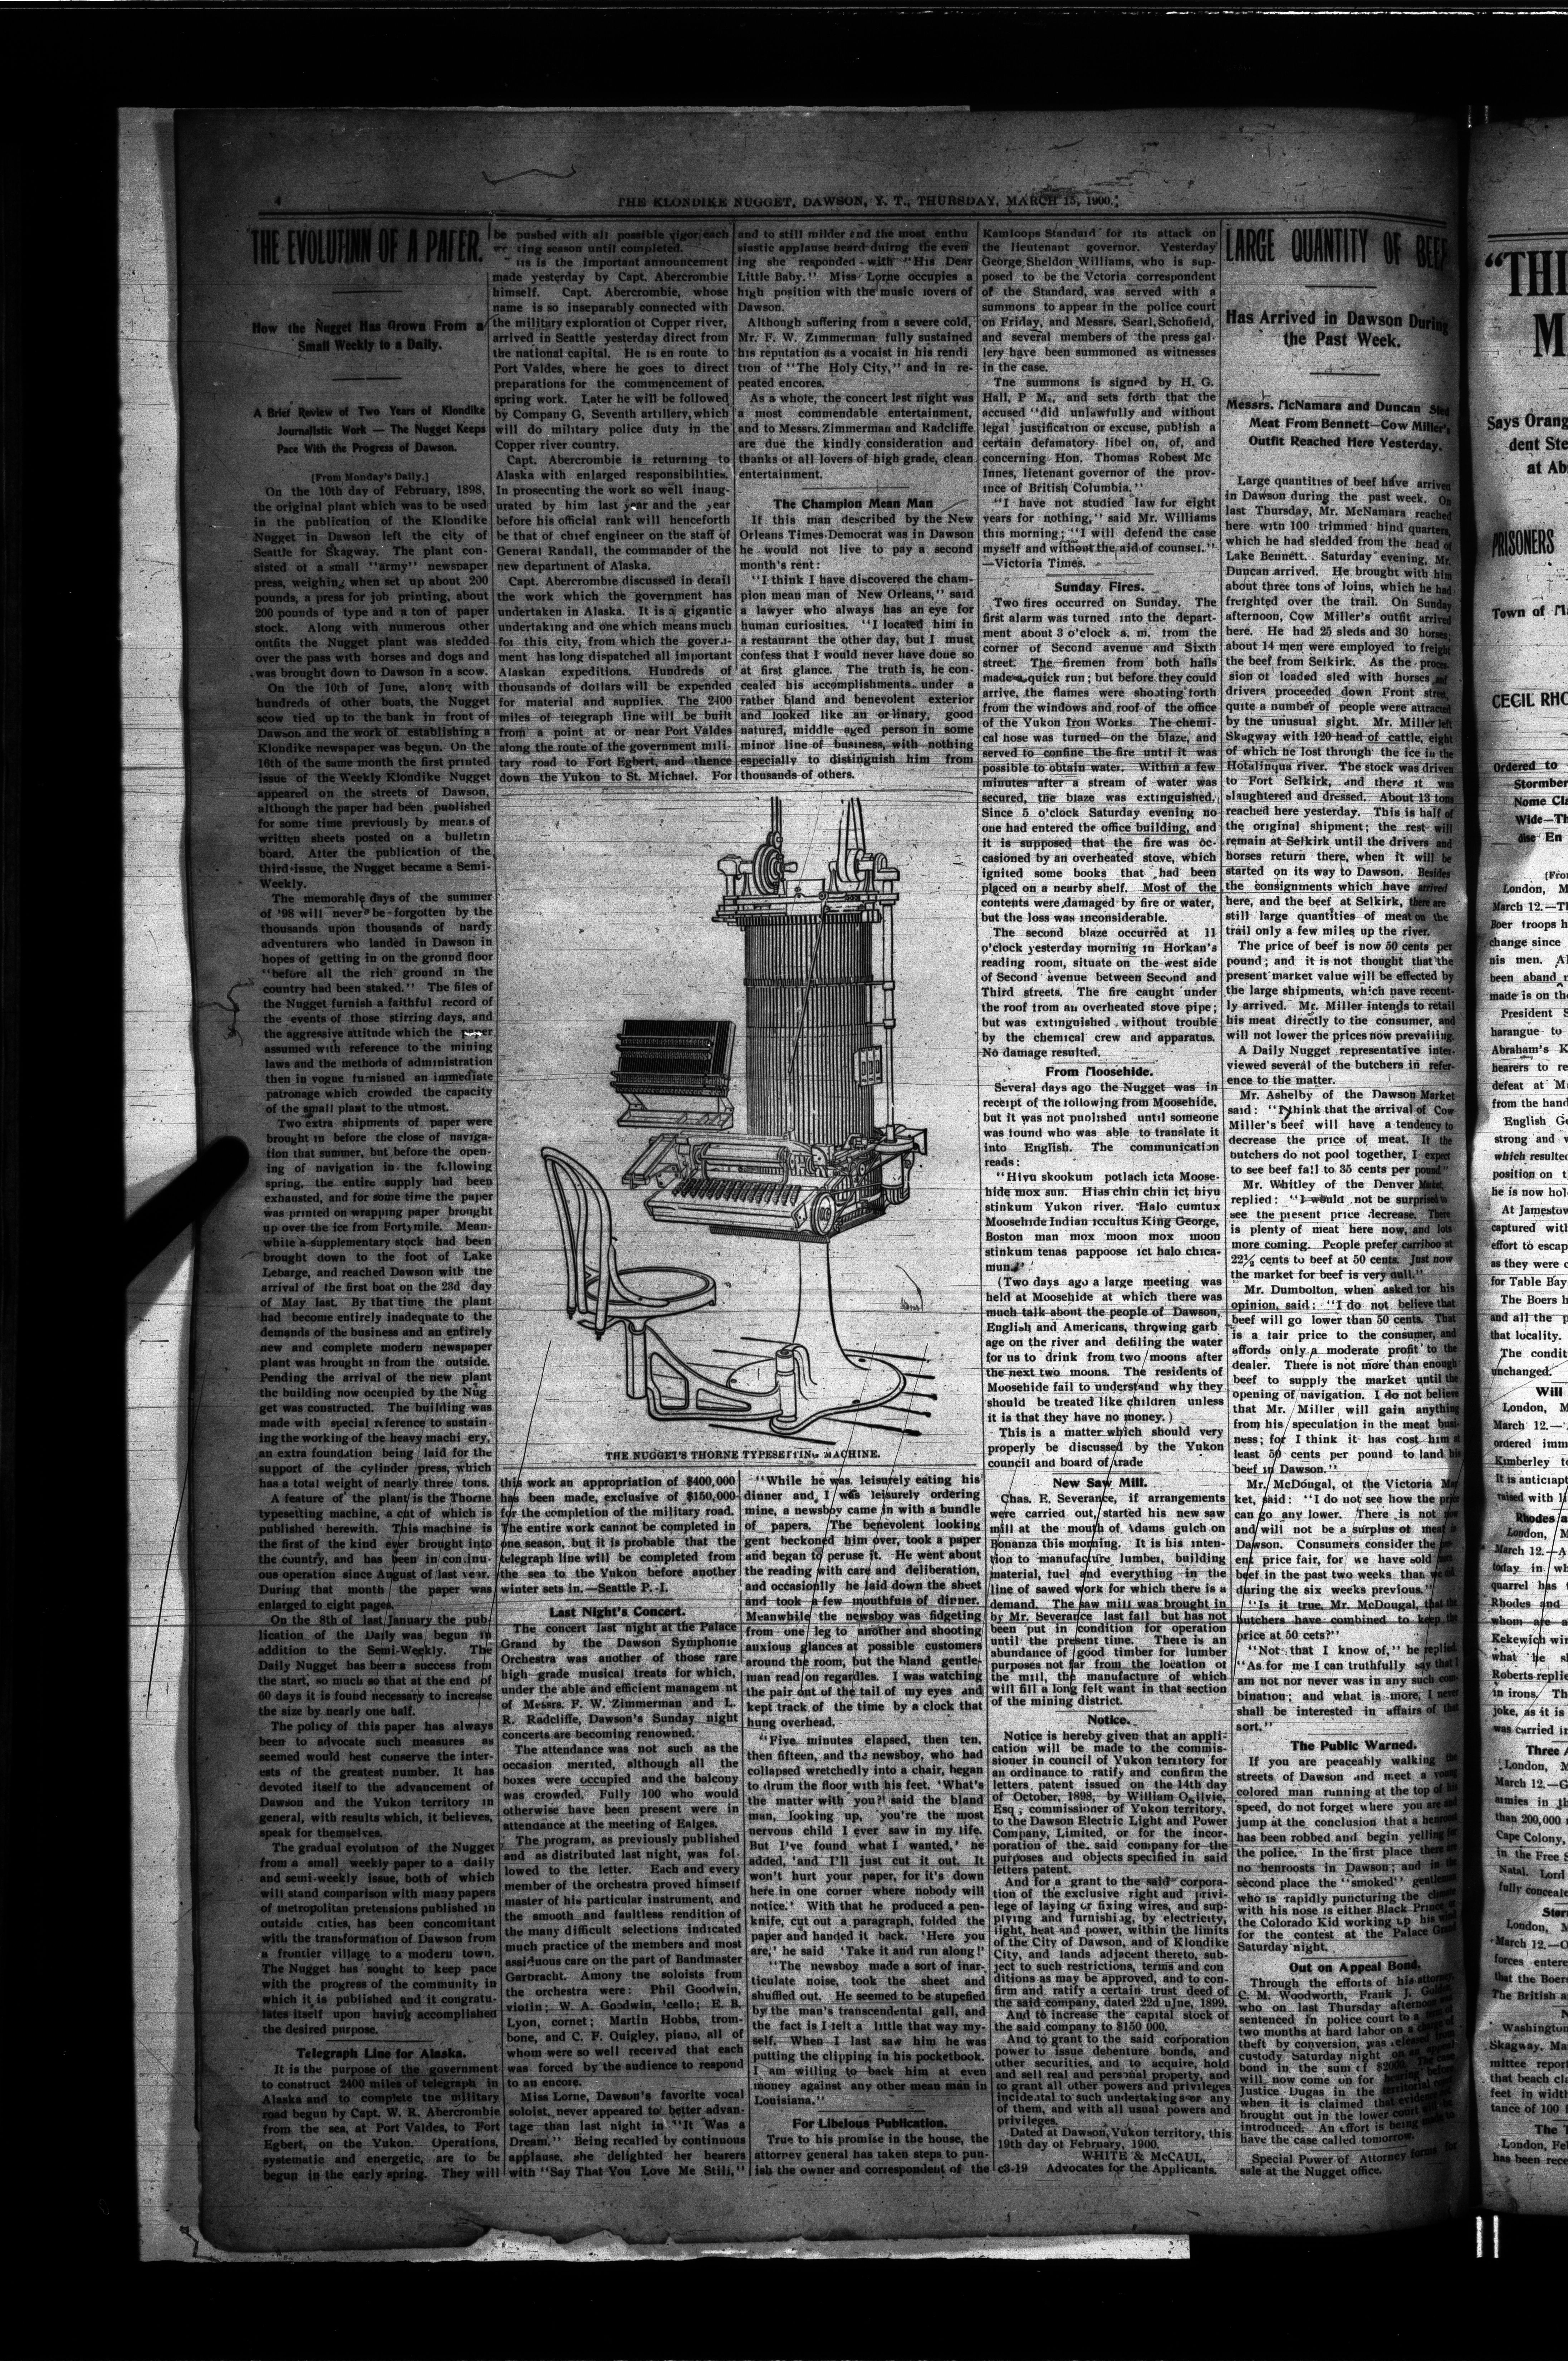 4
THE KLONDIKE NUGGET, DAWSON, Y. T., THURSDAY, MARCH 15, 1900.
THE EVOLUTINN OF A PAPER.
How the Nugget Has Grown From a
Small Weekly to a Daily.
A Brief Review of Two Years of Klondike
Journalistic Work — The Nugget Keeps
Pace With the Progress of Dawson.
[From Monday's Daily.]
On the 10th day of February, 1898,
the original plant which was to be used
in the publication of the Klondike
Nugget in Dawson left the city of
Seattle for Skagway. The plant con-
sisted of a small "army" newspaper
press, weighing when set up about 200
pounds, a press for job printing, about
200 pounds of type and a ton of paper
stock. Along with numerous other
outfits the Nugget plant was sledded
over the pass with horses and dogs and
was brought down to Dawson in a scow.
On the 10th of June, along with
hundreds of other boats, the Nugget
scow tied up to the bank in front of
Dawson and the work of establishing a
Klondike newspaper was begun. On the
16th of the same month the first printed
issue of the Weekly Klondike Nugget
appeared on the streets of Dawson,
although the paper had been published
for some time previously by means of
written sheets posted on a bulletin
board. After the publication of the
third issue, the Nugget became a Semi-
Weekly.
The memorable days of the summer
of '98 will never be forgotten by the
thousands upon thousands of hardy
adventurers who landed in Dawson in
hopes of getting in on the ground floor
"before all the rich ground in the
country had been staked." The files of
the Nugget furnish a faithful record of
the events of those stirring days, and
the aggressive attitude which the paper
assumed with reference to the mining
laws and the methods of administration
then in vogue furnished an immediate
patronage which crowded the capacity
of the small plant to the utmost.
Two extra shipments of paper were
brought in before the close of naviga-
tion that summer, but before the open-
ing of navigation in the following
spring, the entire supply had been
exhausted, and for some time the paper
was printed on wrapping paper brought
up over the ice from Fortymile. Mean-
while a supplementary stock had been
brought down to the foot of Lake
Lebarge, and reached Dawson with the
arrival of the first boat on the 23d day
of May last. By that time the plant
had become entirely inadequate to the
demands of the business and an entirely
new and complete modern newspaper
plant was brought in from the outside.
Pending the arrival of the new plant
the building now occupied by the Nug
get was constructed. The building was
made with special reference to sustain-
ing the working of the heavy machi ery,
an extra foundation being laid for the
support of the cylinder press, which
has a total weight of nearly three tons.
A feature of the plant is the Thorne
typesetting machine, a cut of which is
published herewith. This machine is
the first of the kind ever brought into
the country, and has been in continu-
ous operation since August of last year.
During that month the paper was
enlarged to eight pages.
On the 8th of last January the pub-
lication of the Daily was begun in
addition to the Semi-Weekly. The
Daily Nugget has been a success from
the start, so much so that at the end of
60 days it is found necessary to increase
the size by nearly one half.
The policy of this paper has always
been to advocate such measures as
seemed would best conserve the inter-
ests of the greatest number. It has
devoted itself to the advancement of
Dawson and the Yukon territory in
general, with results which, it believes,
speak for themselves.
The gradual evolution of the Nugget
from a small weekly paper to a daily
and semi-weekly issue, both of which
will stand comparison with many papers
of metropolitan pretensions published in
outside cities, has been concomitant
with the transformation of Dawson from
a frontier village to a modern town.
The Nugget has sought to keep pace
with the progress of the community in
which it is published and it congratu-
lates itself upon having accomplished
the desired purpose.
Telegraph Line for Alaska.
It is the purpose of the government
to construct 2400 miles of telegraph in
Alaska and to complete the military
road begun by Capt. W. R. Abercrombie
from the sea, at Port Valdes, to Fort
Egbert, on the Yukon. Operations,
systematic and energetic, are to be
begun in the early spring. They will
be pushed with all possible vigor each
season until completed.
is is the important announcement
made yesterday by Capt. Abercrombie
himself. Capt. Abercrombie, whose
name is so inseparably connected with
the military exploration of Copper river,
arrived in Seattle yesterday direct from
the national capital. He is en route to
Port Valdes, where he goes to direct
preparations for the commencement of
spring work. Later he will be followed
by Company G, Seventh artillery, which
will do military police duty in the
Copper river country.
Capt. Abercrombie is returning to
Alaska with enlarged responsibilities.
In prosecuting the work so well inaug-
urated by him last year and the year
before his official rank will henceforth
be that of chief engineer on the staff of
General Randall, the commander of the
new department of Alaska.
Capt. Abercrombie discussed in detail
the work which the government has
undertaken in Alaska. It is a gigantic
undertaking and one which means much
for this city, from which the govern-
ment has long dispatched all important
Alaskan expeditions. Hundreds of
thousands of dollars will be expended
for material and supplies. The 2400
miles of telegraph line will be built
from a point at or near Port Valdes
along the route of the government mili-
tary road to Fort Egbert, and thence
down the Yukon to St. Michael. For
and to still milder and the most enthu
siastic applause heard duirng the even
ing she responded with "His Dear
Little Baby." Miss Lorne occupies a
high position with the music lovers of
Dawson.
Although suffering from a severe cold,
Mr. F. W. Zimmerman fully sustained
his reputation as a vocaist in his rendi
tion of "The Holy City," and in re-
peated encores.
As a whole, the concert last night was
a most commendable entertainment,
and to Messrs. Zimmerman and Radcliffe
are due the kindly consideration and
thanks of all lovers of high grade, clean
entertainment.
The Champion Mean Man
If this man described by the New
Orleans Times-Democrat was in Dawson
he would not live to pay a second
month's rent:
"I think I have discovered the cham-
pion mean man of New Orleans," said
a lawyer who always has an eye for
human curiosities. "I located him in
a restaurant the other day, but I must
confess that I would never have done so
at first glance. The truth is, he con-
cealed his accomplishments under a
rather bland and benevolent exterior
and looked like an ordinary, good
natured, middle aged person in some
minor line of business, with nothing
especially to distinguish him from
thousands of others.
THE NUGGET'S THORNE TYPESETTING MACHINE.
this work an appropriation of $400,000
has been made, exclusive of $150,000
for the completion of the military road.
The entire work cannot be completed in
one season, but it is probable that the
telegraph line will be completed from
the sea to the Yukon before another
winter sets in.—Seattle P.-I.
Last Night's Concert.
The concert last night at the Palace
Grand by the Dawson Symphonie
Orchestra was another of those rare
high grade musical treats for which,
under the able and efficient managem nt
of Messrs. F. W. Zimmerman and L.
R. Radcliffe, Dawson's Sunday night
concerts are becoming renowned.
The attendance was not such as the
occasion merited, although all the
boxes were occupied and the balcony
was crowded. Fully 100 who would
otherwise have been present were in
attendance at the meeting of Ealges.
The program, as previously published
and as distributed last night, was fol-
lowed to the letter. Each and every
member of the orchestra proved himself
master of his particular instrument, and
the smooth and faultless rendition of
the many difficult selections indicated
much practice of the members and most
assiduous care on the part of Bandmaster
Garbracht. Amony tne soloists from
the orchestra were: Phil Goodwin,
violin; W. A. Goodwin, 'cello; E. B.
Lyon, cornet; Martin Hobbs, trom-
bone, and C. F. Quigley, piano, all of
whom were so well received that each
was forced by the audience to respond
to an encore.
Miss Lorne, Dawson's favorite vocal
soloist, never appeared to better advan-
tage than last night in "It Was a
Dream." Being recalled by continuous
applause, she delighted her hearers
with "Say That You Love Me Still,"
"While he was leisurely eating his
dinner and I was leisurely ordering
mine, a newsboy came in with a bundle
of papers. The benevolent looking
gent beckoned him over, took a paper
and began to peruse it. He went about
the reading with care and deliberation,
and occasionlly he laid down the sheet
and took a few mouthfuls of dinner.
Meanwhile the newsboy was fidgeting
from one leg to another and shooting
anxious glances at possible customers
around the room, but the bland gentle-
man read on regardles. I was watching
the pair out of the tail of my eyes and
kept track of the time by a clock that
hung overhead.
"Five minutes elapsed, then ten,
then fifteen, and the newsboy, who had
collapsed wretchedly into a chair, began
to drum the floor with his feet. 'What's
the matter with you?' said the bland
man, looking up, 'you're the most
nervous child I ever saw in my life.
But I've found what I wanted,' he
added, 'and I'll just cut it out. It
won't hurt your paper, for it's down
here in one corner where nobody will
notice.' With that he produced a pen-
knife, cut out a paragraph, folded the
paper and handed it back. 'Here you
are,' he said 'Take it and run along!'
"The newsboy made a sort of inar-
ticulate noise, took the sheet and
shuffled out. He seemed to be stupefied
by the man's transcendental gall, and
the fact is I felt a little that way my-
self. When I last saw him he was
putting the clipping in his pocketbook.
I am willing to back him at even
money against any other mean man in
Louisiana."
For Libelous Publication.
True to his promise in the house, the
attorney general has taken steps to pun-
ish the owner and correspondent of the
Kamloops Standard for its attack on
the lieutenant governor. Yesterday
George Sheldon Williams, who is sup-
posed to be the Vctoria correspondent
of the Standard, was served with a
summons to appear in the police court
on Friday, and Messrs. Searl, Schofield,
and several members of the press gal-
lery have been summoned as witnesses
in the case.
The summons is signed by H. G.
Hall, P M., and sets forth that the
accused "did unlawfully and without
legal justification or excuse, publish a
certain defamatory libel on, of, and
concerning Hon. Thomas Robert Mc
Innes, lietenant governor of the prov-
ince of British Columbia."
"I have not studied law for eight
years for nothing," said Mr. Williams
this morning; "I will defend the case
myself and without the aid of counsel."
—Victoria Times.
Sunday Fires.
Two fires occurred on Sunday. The
first alarm was turned into the depart-
ment about 3 o'clock a. m. from the
corner of Second avenue and Sixth
street. The firemen from both halls
made a quick run; but before they could
arrive, the flames were shooting forth
from the windows and roof of the office
of the Yukon Iron Works. The chemi-
cal hose was turned on the blaze, and
served to confine the fire until it was
possible to obtain water. Within a few
minutes after a stream of water was
secured, the blaze was extinguished.
Since 5 o'clock Saturday evening no
one had entered the office building, and
it is supposed that the fire was oc-
casioned by an overheated stove, which
ignited some books that had been
placed on a nearby shelf. Most of the
contents were damaged by fire or water,
but the loss was inconsiderable.
The second blaze occurred at 11
o'clock yesterday morning in Horkan's
reading room, situate on the west side
of Second avenue between Second and
Third streets. The fire caught under
the roof from an overheated stove pipe;
but was extinguished without trouble
by the chemical crew and apparatus.
No damage resulted.
From Moosehide.
Several days ago the Nugget was in
receipt of the following from Moosehide,
but it was not published until someone
was found who was able to translate it
into English. The communication
reads:
"Hiyu skookum potlach icta Moose-
hide mox sun. Hias chin chin ict hiyu
stinkum Yukon river. Halo cumtux
Moosehide Indian iccultus King George,
Boston man mox moon mox moon
stinkum tenas pappoose ict halo chica-
mun."
(Two days ago a large meeting was
held at Moosehide at which there was
much talk about the people of Dawson,
English and Americans, throwing garb
age on the river and defiling the water
for us to drink from two moons after
the next two moons. The residents of
Moosehide fail to understand why they
should be treated like children unless
it is that they have no money.)
This is a matter which should very
properly be discussed by the Yukon
council and board of trade
New Saw Mill.
Chas. E. Severance, if arrangements
were carried out, started his new saw
mill at the mouth of Adams gulch on
Bonanza this morning. It is his inten-
tion to manufacture lumber, building
material, fuel and everything in the
line of sawed work for which there is a
demand. The saw mill was brought in
by Mr. Severance last fall but has not
been put in condition for operation
until the present time. There is an
abundance of good timber for lumber
purposes not far from the location of
the mill, the manufacture of which
will fill a long felt want in that section
of the mining district.
Notice.
Notice is hereby given that an appli-
cation will be made to the commis-
sioner in council of Yukon territory for
an ordinance to ratify and confirm the
letters patent issued on the 14th day
of October, 1898, by William Ogilvie,
Esq., commissioner of Yukon territory,
to the Dawson Electric Light and Power
Company, Limited, or for the incor-
poration of the said company for the
purposes and objects specified in said
letters patent.
And for a grant to the said corpora-
tion of the exclusive right and privi-
lege of laying or fixing wires, and sup-
plying and furnishing, by electricity,
light, heat and power, within the limits
of the City of Dawson, and of Klondike
City, and lands adjacent thereto, sub-
ject to such restrictions, terms and con
ditions as may be approved, and to con-
firm and ratify a certain trust deed of
the said company, dated 22d uJne, 1899.
And to increase the capital stock of
the said company to $150 000.
And to grant to the said corporation
power to issue debenture bonds, and
other securities, and to acquire, hold
and sell real and personal property, and
to grant all other powers and privileges
incidental to such undertaking or any
of them, and with all usual powers and
privileges.
Dated at Dawson, Yukon territory, this
19th day of February, 1900.
WHITE & McCAUL,
c3-19 Advocates for the Applicants.
LARGE QUANTITY OF BEEF
Has Arrived in Dawson During
the Past Week.
Messrs. McNamara and Duncan Sled
Meat From Bennett—Cow Miller's
Outfit Reached Here Yesterday.
Large quantities of beef have arrived
in Dawson during the past week. On
last Thursday, Mr. McNamara reached
here with 100 trimmed hind quarters,
which he had sledded from the head of
Lake Bennett. Saturday evening, Mr.
Duncan arrived. He brought with him
about three tons of loins, which he had
freighted over the trail. On Sunday
afternoon, Cow Miller's outfit arrived
here. He had 25 sleds and 30 horses;
about 14 men were employed to freight
the beef from Selkirk. As the proces-
sion of loaded sled with horses and
drivers proceeded down Front street,
quite a number of people were attracted
by the unusual sight. Mr. Miller left
Skagway with 120 head of cattle, eight
of which he lost through the ice in the
Hotalinqua river. The stock was driven
to Fort Selkirk, and there it was
slaughtered and dressed. About 13 tons
reached here yesterday. This is half of
the original shipment; the rest will
remain at Selkirk until the drivers and
horses return there, when it will be
started on its way to Dawson. Besides
the consignments which have arrived
here, and the beef at Selkirk, there are
still large quantities of meat on the
trail only a few miles up the river.
The price of beef is now 50 cents per
pound; and it is not thought that the
present market value will be effected by
the large shipments, which have recent-
ly arrived. Mr. Miller intends to retail
his meat directly to the consumer, and
will not lower the prices now prevailing.
A Daily Nugget representative inter-
viewed several of the butchers in refer-
ence to the matter.
Mr. Ashelby of the Dawson Market
said: "I think that the arrival of Cow
Miller's beef will have a tendency to
decrease the price of meat. If the
butchers do not pool together, I expect
to see beef fall to 35 cents per pound"
Mr. Whitley of the Denver Market,
replied: "I would not be surprised to
see the present price decrease. There
is plenty of meat here now, and lots
more coming. People prefer carriboo at
22½ cents to beef at 50 cents. Just now
the market for beef is very dull."
Mr. Dumbolton, when asked for his
opinion, said: "I do not believe that
beef will go lower than 50 cents. That
is a fair price to the consumer, and
affords only a moderate profit to the
dealer. There is not more than enough
beef to supply the market until the
opening of navigation. I do not believe
that Mr. Miller will gain anything
from his speculation in the meat busi-
ness; for I think it has cost him at
least 50 cents per pound to land his
beef in Dawson."
Mr. McDougal, of the Victoria Mar
ket, said: "I do not see how the price
can go any lower. There is not now
and will not be a surplus of meat in
Dawson. Consumers consider the pres-
ent price fair, for we have sold
beef in the past two weeks than we did
during the six weeks previous."
"Is it true, Mr. McDougal, that the
butchers have combined to keep the
price at 50 cets?"
"Not that I know of," he replied
"As for me I can truthfully say that I
am not nor never was in any such com
bination; and what is more, I never
shall be interested in affairs of that
sort."
The Public Warned.
If you are peaceably walking the
streets of Dawson and meet a young
colored man running at the top of his
speed, do not forget where you are and
jump at the conclusion that a henroost
has been robbed and begin yelling for
the police. In the first place there are
no henroosts in Dawson; and in the
second place the "smoked" gentleman
who is rapidly puncturing the climate
with his nose is either Black Prince or
the Colorado Kid working up his wind
for the contest at the Palace Grand
Saturday night.
Out on Appeal Bond.
Through the efforts of his attorney,
C. M. Woodworth, Frank J. Golden
who on last Thursday afternoon was
sentenced in police court to a term of
two months at hard labor on a charge of
theft by conversion, was released from
custody Saturday night on an appeal
bond in the sum of $2000. The case
will now come on for hearing before
Justice Dugas in the territorial court
when it is claimed that evidence
brought out in the lower court will be
introduced. An effort is being made to
have the case called tomorrow.
Special Power of Attorney forms for
sale at the Nugget office.
"THI
M
Says Orang
dent Ste
at Ab
PRISONERS
Town of Ma
CECIL RHO
Ordered to
Stormber
Nome Cla
Wide—Th
dise En
[From
London, M
March 12.—Th
Boer troops h
change since
his men. Al
been aband
made is on the
President S
harangue to
Abraham's K
hearers to re
defeat at M
from the hand
English Ge
strong and
which resulted
position on t
he is now hol
At Jamestow
captured with
effort to escap
as they were c
for Table Bay
The Boers h
and all the p
that locality.
The condit
unchanged.
Will
London, M
March 12.—
ordered imm
Kimberley to
It is anticiapt
raised with li
Rhodes a
London, M
March 12.—A
today in wh
quarrel has
Rhodes and
whom are a
Kekewich wir
what he is
Roberts replie
in irons. Th
joke, as it is
was carried in
Three A
London, M
March 12.—G
armies in the
than 200,000
Cape Colony,
in the Free S
Natal. Lord
fully conceale
Stor
London, M
March 12.—O
forces entere
that the Boer
The British a
Washington
Skagway, Ma
mittee repor
that beach cla
feet in width
tance of 100 f
The T
London, Fe
has been rece